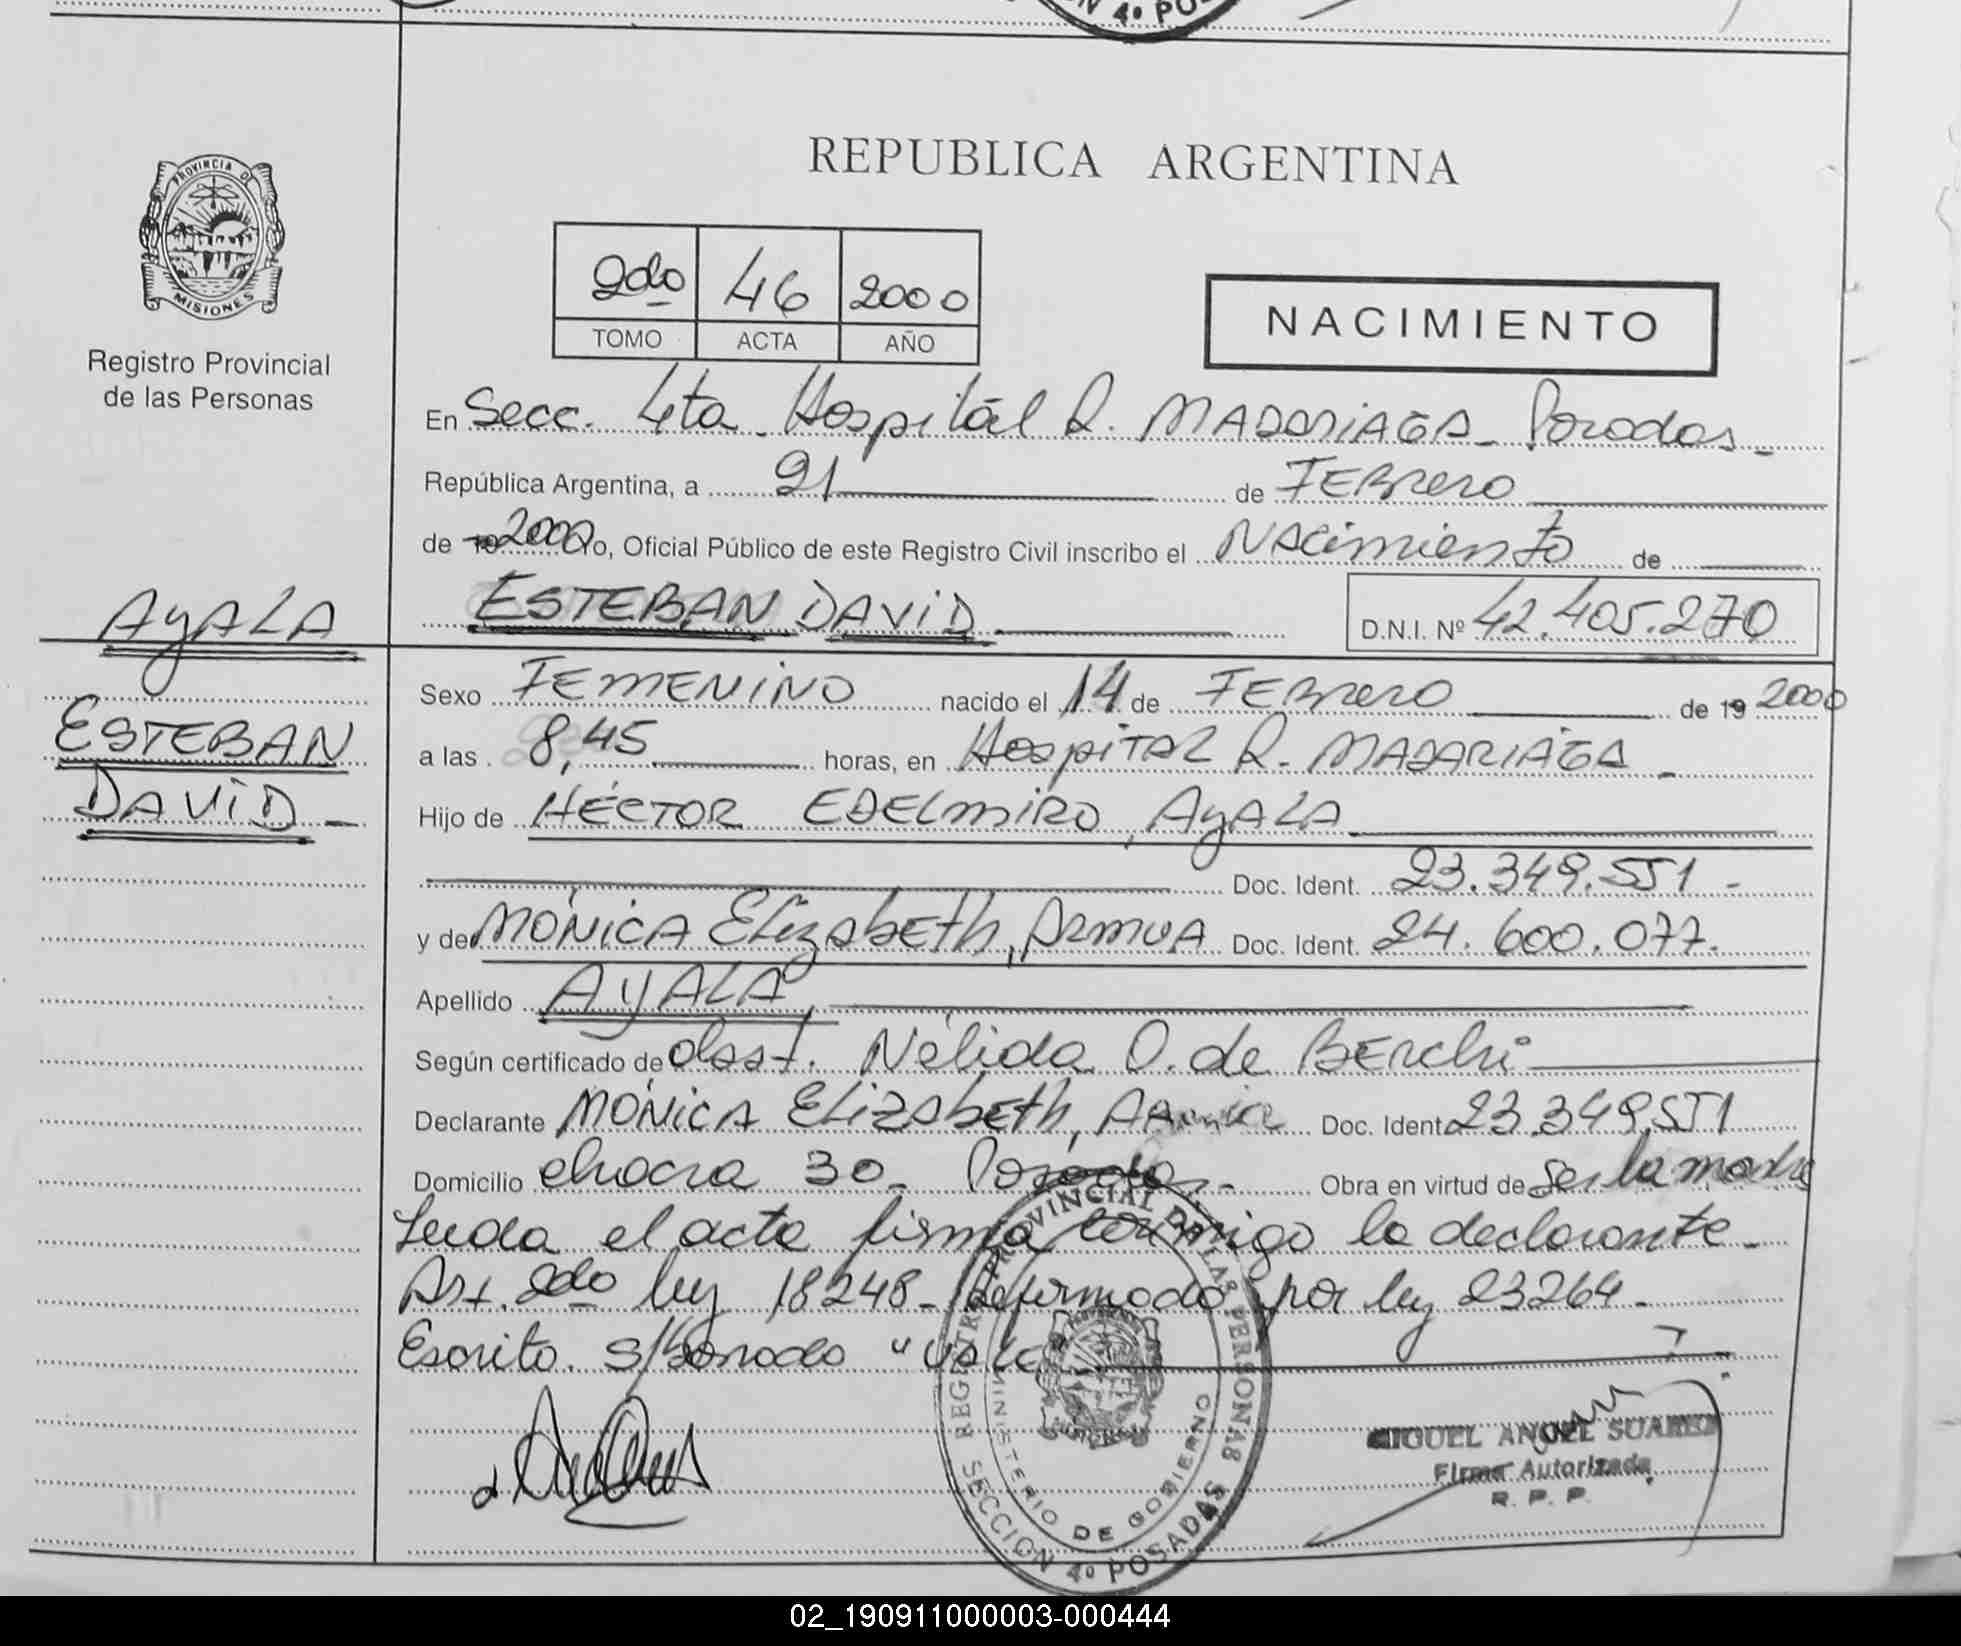 N 4º PO
REPUBLICA ARGENTINA
PROVINCIA DE
MISIONES
Registro Provincial
de las Personas
2do 46 2000
TOMO ACTA AÑO
NACIMIENTO
En Secc. 4ta. Hospital R. MADARIAGA - Posadas -
República Argentina, a 21 de FEBrero
de 19 2000 Yo, Oficial Público de este Registro Civil inscribo el NACimiento de
ESTEBAN DAVID D.N.I. Nº 42.405.270
AyALA
ESTEBAN
DAVID -
Sexo FEMENINO nacido el 14 de FEBrero de 19 2000
a las 8,45 horas, en HospiTAL R. MADARIAGA -
Hijo de HÉCTOR EDELmiRO, AyALA
Doc. Ident. 23.349.551 -
y de MÓNiCA ELizabETh, ARMUA Doc. Ident. 24.600.077.
Apellido AyALA,
Según certificado de obst. Nélida O. de BERchi
Declarante MÓNiCA ELiZabETh, Doc. Ident 23.349.551
Domicilio chacra 30 - Posadas - Obra en virtud de ser la madre
Leida el acta firma conmigo la declarante -
Art. 2do ley 18248 - Reformado por ley 23264 -
Escrito s/borrado "Vale"
REGISTRO PROVINCIAL DE LAS PERSONAS
MINISTERIO DE GOBIERNO
SECCION 4º POSADAS
MIGUEL ANGEL SUAREZ
Firma Autorizada
R. P. P.
02_190911000003-000444